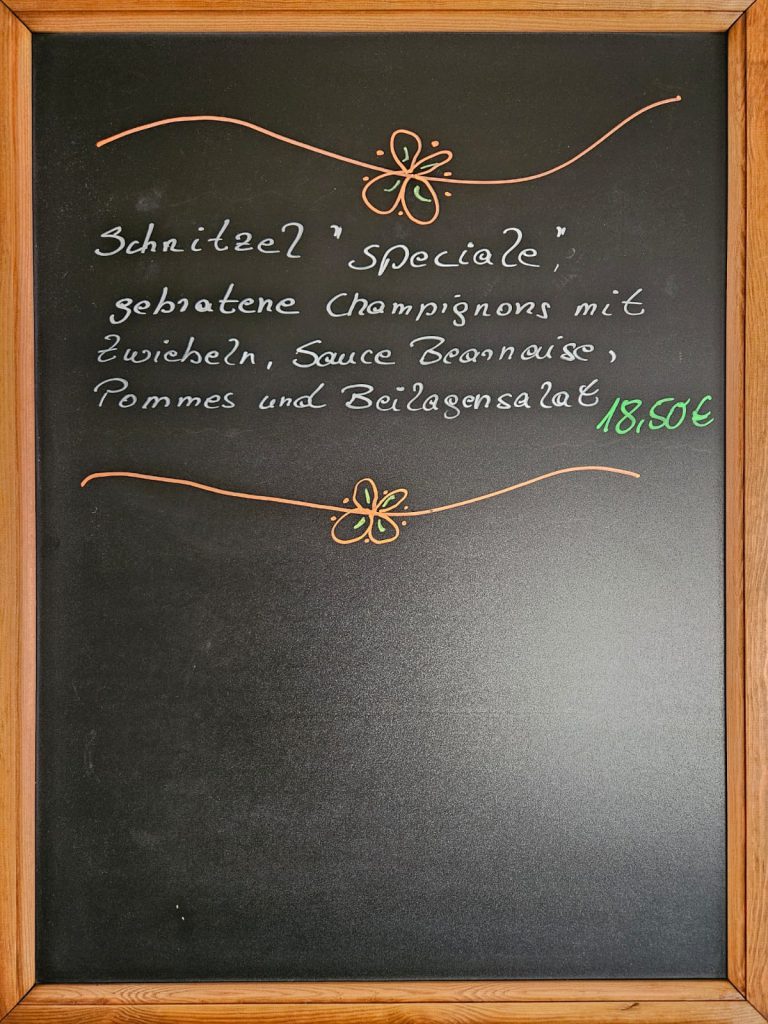 Schnitzel "speciale",
gebratene Champignons mit
Zwiebeln, Sauce Bearnaise,
Pommes und Beilagensalat
18,50€